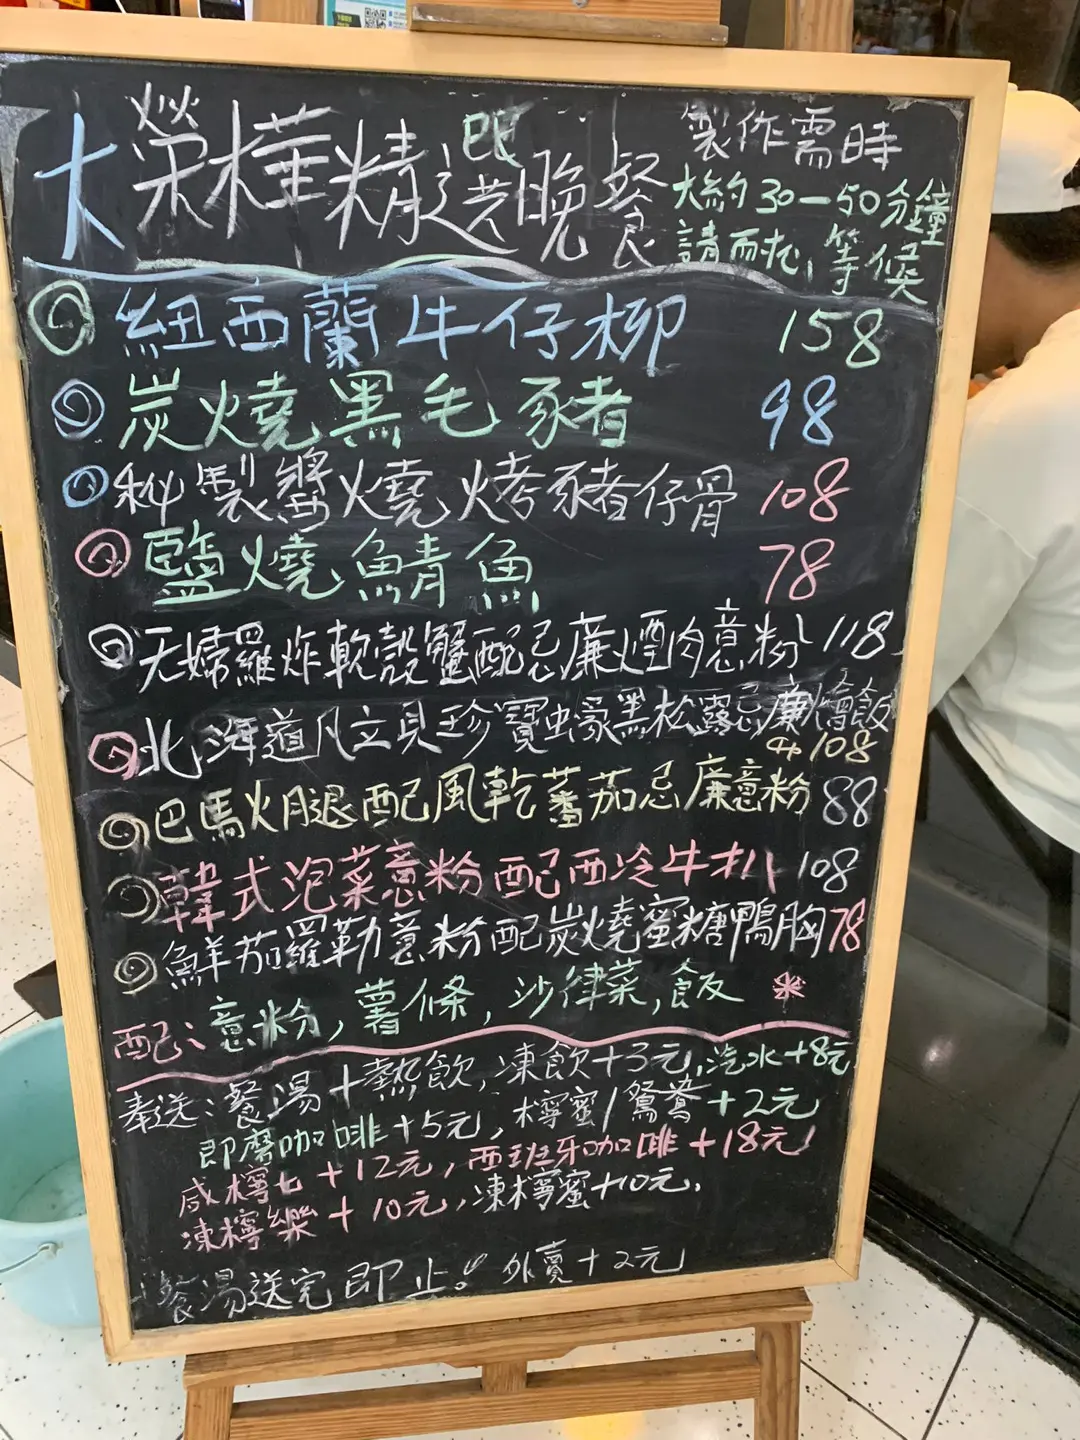 大榮樺精選晚餐
製作需時
大約30-50分鐘
請而抋、等候
紐西蘭牛仔柳 158
炭燒黑毛豚豬 98
秘製醬燒烤豬仔骨 108
鹽燒鯖魚 78
天婦羅炸軟殼蟹配忌廉煙肉意粉 118
北海道凡立貝珍寶虫豪黑松露忌廉燴飯 108
巴馬火腿配風乾蕃茄忌廉意粉 88
韓式泡菜意粉配西冷牛扒 108
鮮茄羅勒意粉配炭燒蜜糖鴨胸 78
配:意粉,薯條,沙律菜,飯 *
奉送:餐湯+熱飲,凍飲+3元,汽水+8元
即磨咖啡+5元,檸蜜/鴛鴦+2元
咸檸七+12元,西班牙咖啡+18元
凍檸樂+10元,凍檸蜜+10元.
餐湯送完即止! 外賣+2元